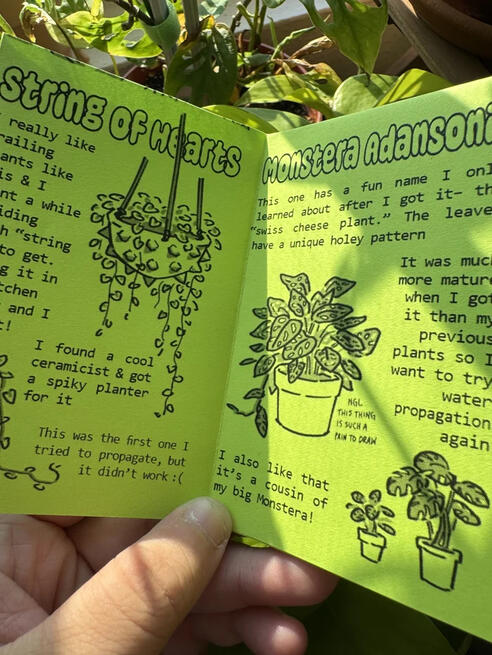 String of Hearts
really like
railing
ants like
is & I
nt a while
iding
h "string
to get.
g it in
tchen
and I
t!
I found a cool
ceramicist & got
a spiky planter
for it
This was the first one I
tried to propagate, but
it didn't work :(
Monstera Adansoni
This one has a fun name I onl
learned about after I got it- th
"swiss cheese plant." The leave
have a unique holey pattern
It was much
more mature
when I got
it than my
previous
plants so I
want to try
water
propagation
again
NGL
THIS THING
IS SUCH A
PAIN TO DRAW
I also like that
it's a cousin of
my big Monstera!